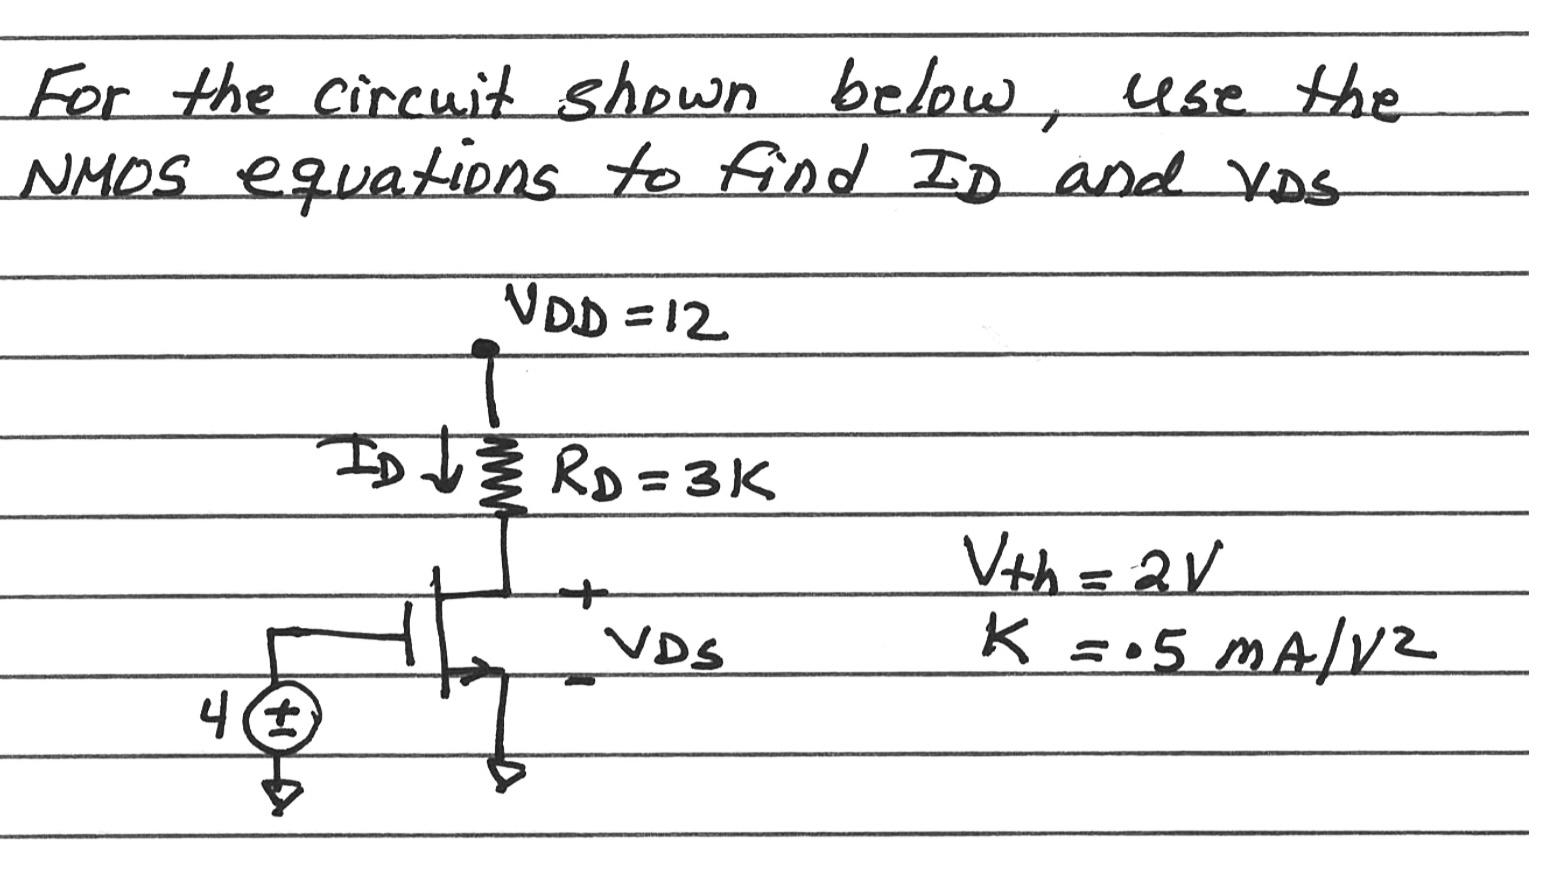 For the circuit shown below, use the
NMOS equations to find ID and VDS
VDD = 12
ID
RD = 3K
Vth = 2V
+
VDS
K = .5 mA/V2
-
4
+
-